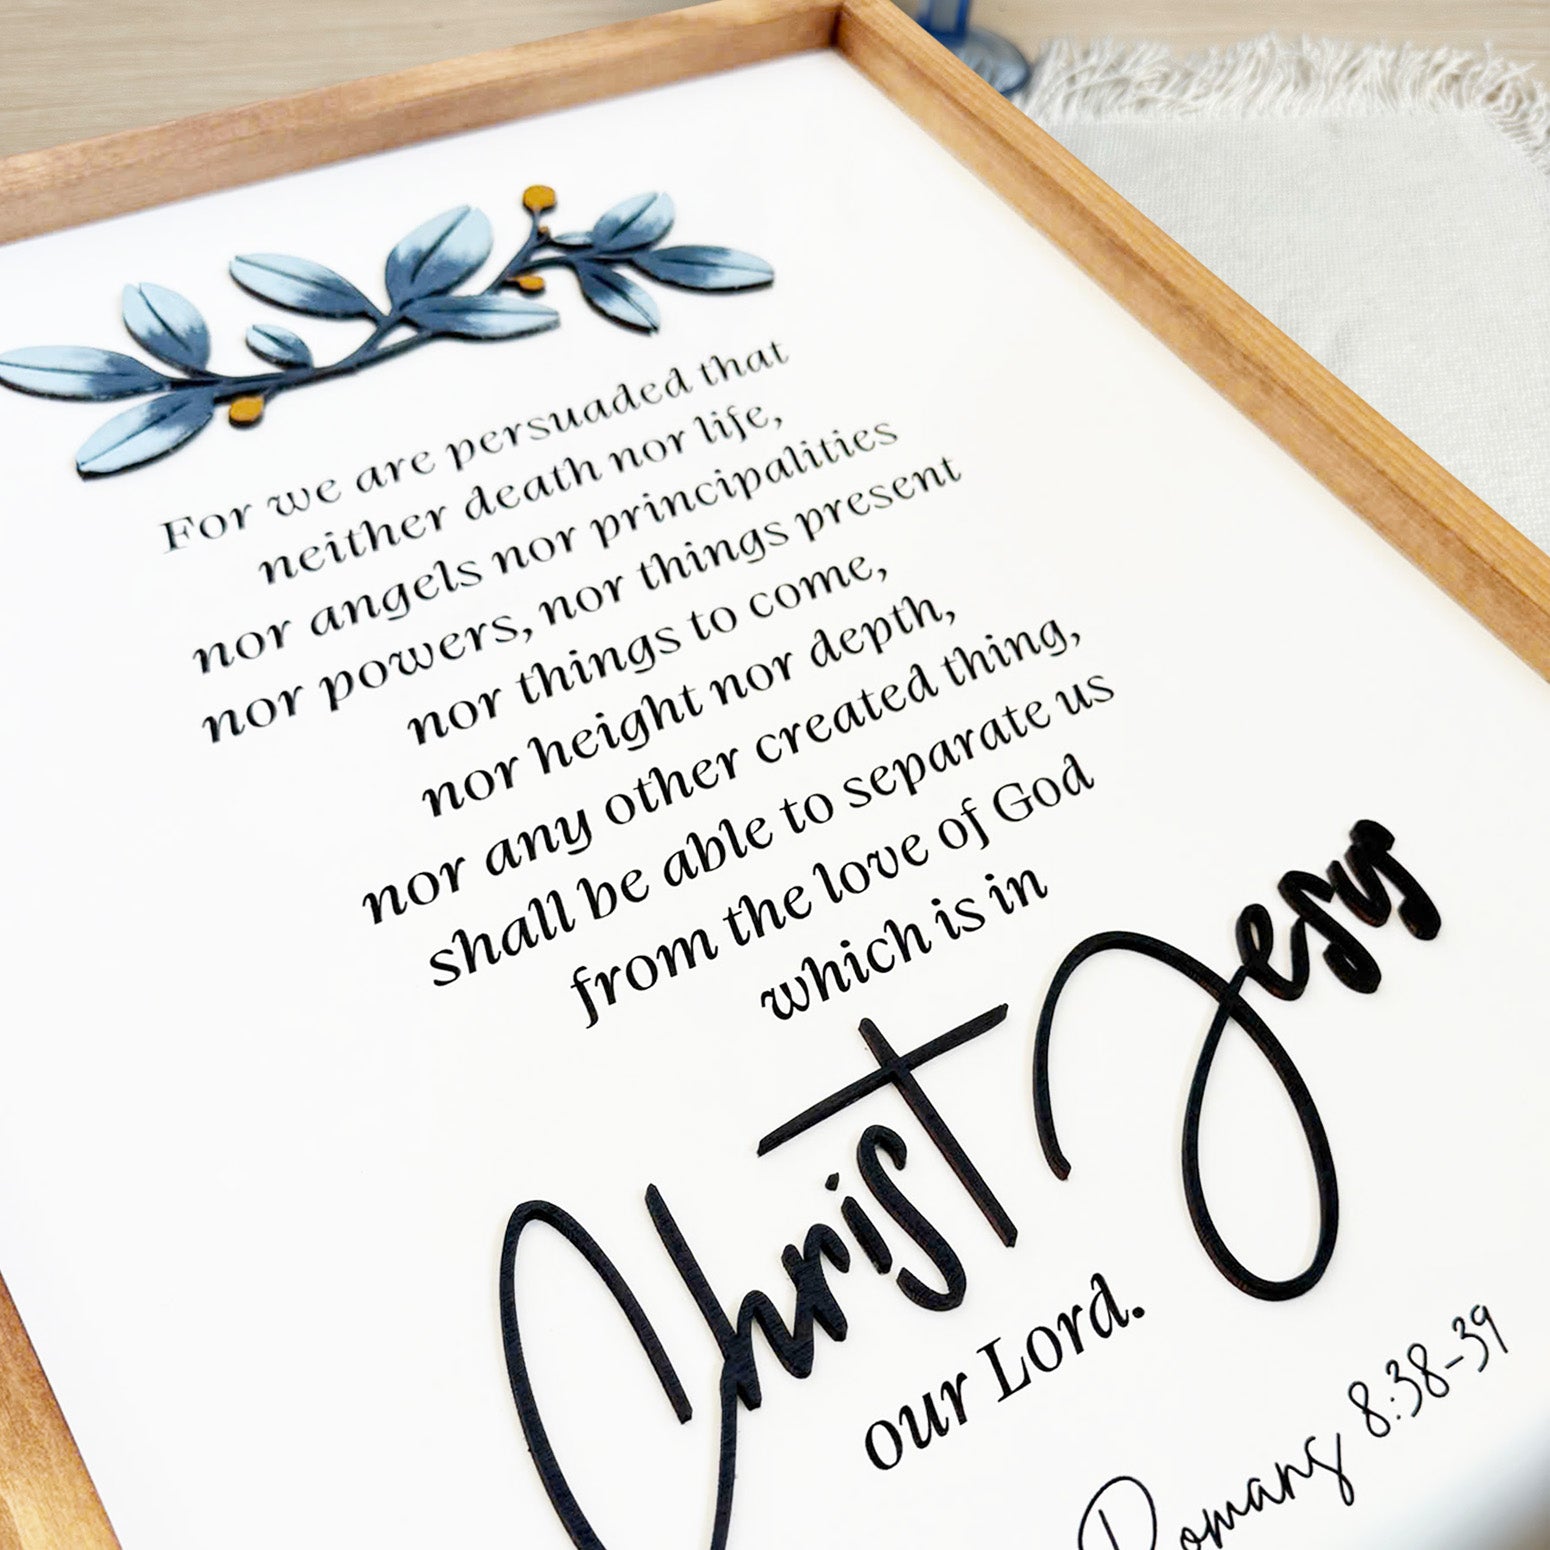 For we are persuaded that
neither death nor life,
nor angels nor principalities
nor powers, nor things present
nor things to come,
nor height nor depth,
nor any other created thing,
shall be able to separate us
from the love of God
which is in
Christ Jesus
our Lord.
Romans 8:38-39